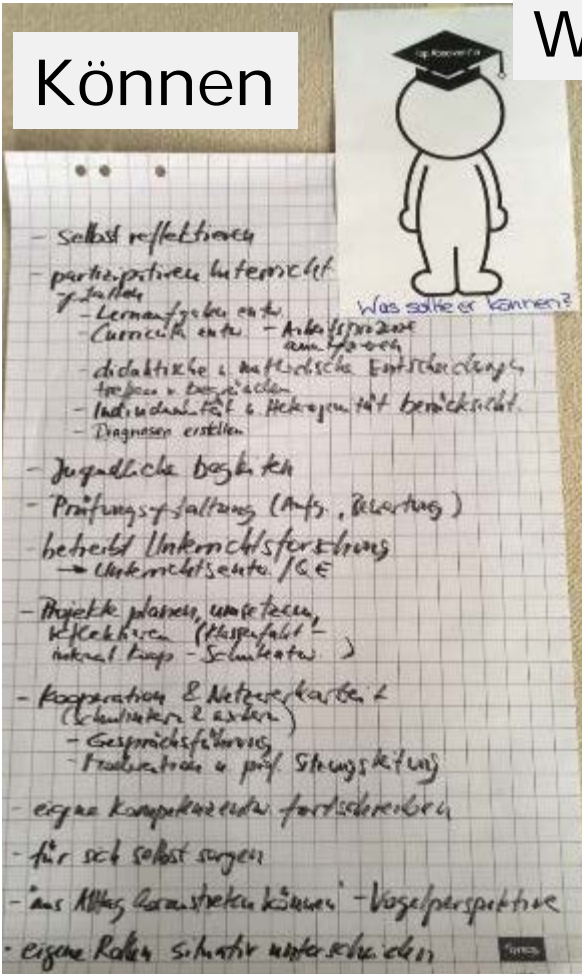 Können
W
Was sollte er können?
- selbst reflektieren
- partizipativen Unterricht
gestalten
- Lernaufgaben entw.
- Curricula entw. - Arbeitsprozesse
- didaktische u methodische Entscheidungen
treffen u begründen
- Individualität & Heterogenität berücksicht.
- Diagnosen erstellen
- Jugendliche begleiten
- Prüfungsgestaltung (Aufg., Bewertung)
- betreibt Unterrichtsforschung
→ Unterrichtsentw. / QE
- Projekte planen, umsetzen,
reflektieren (Klassenfahrt -
internat. Koop - Schulentw. )
- Kooperation & Netzwerkarbeit
(schulintern & extern)
- Gesprächsführung
- u prof. Sitzungsleitung
- eigene Kompetenzentw. fortschreiben
- für sich selbst sorgen
- "aus Alltag heraustreten können" - Vogelperspektive
- eigene Rollen situativ unterscheiden